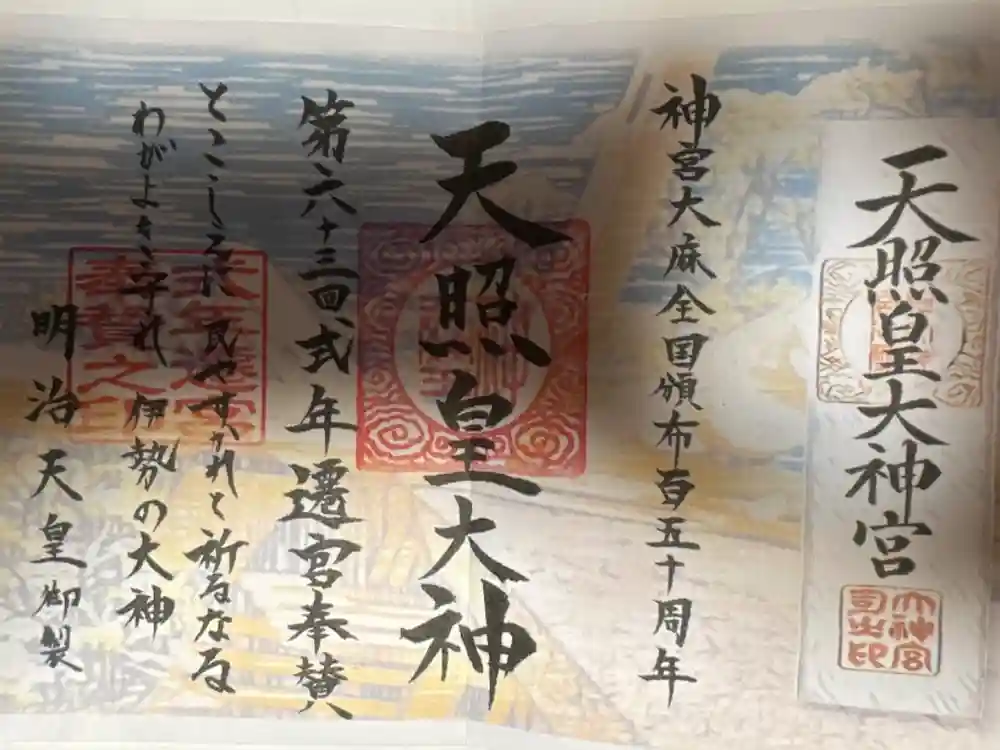 天照皇大神宮
大神宮
司之印
神宮大麻全国頒布百五十周年
天照皇大神
第六十三回式年遷宮奉賛
式年遷宮
奉賛之印
とこしえに 民やすかれと祈るなる
わがよを守れ 伊勢の大神
明治天皇御製